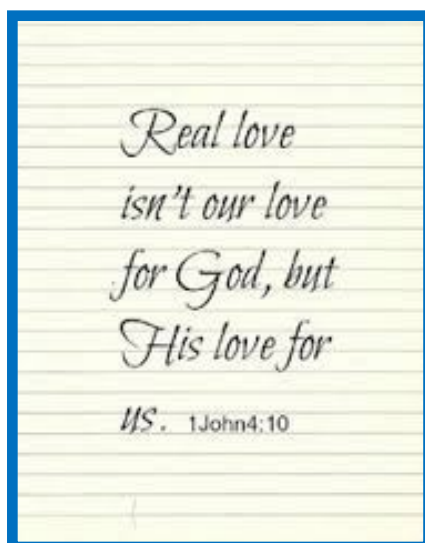 Real love
isn't our love
for God, but
His love for
us. 1John4:10